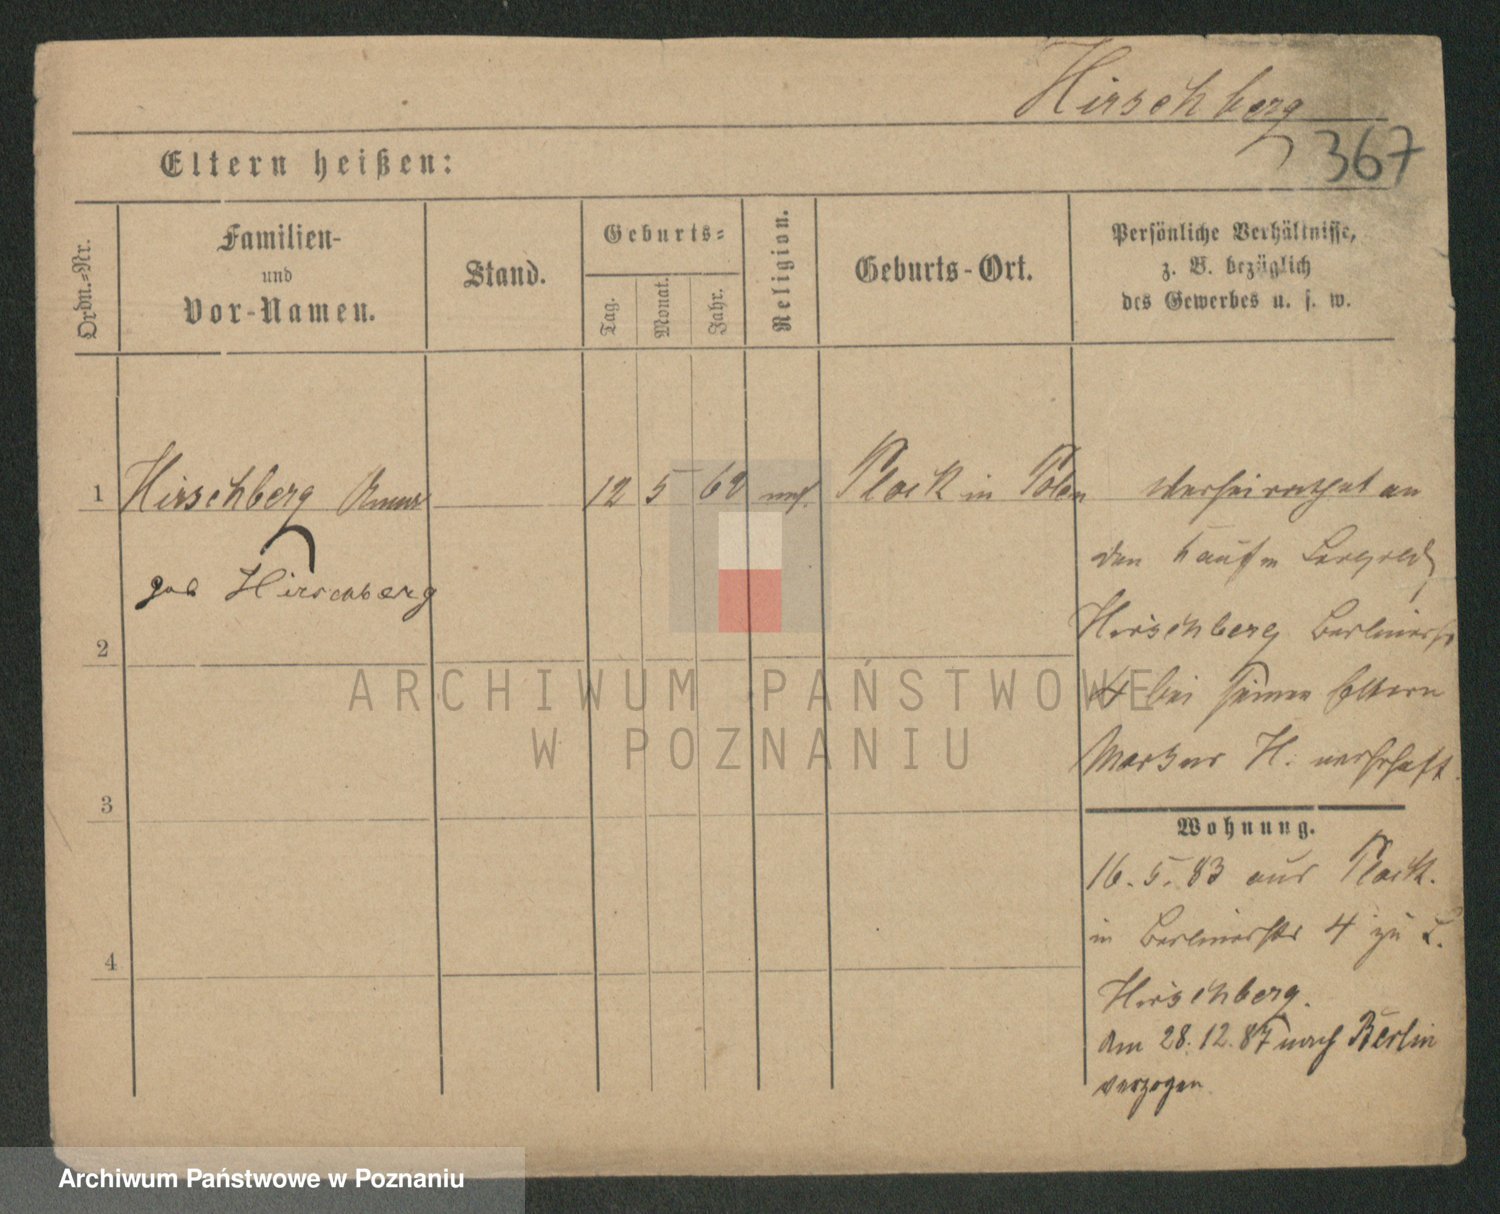 Hirschberg
367
Eltern heißen:
Ordn.-Nr.
Familien-
und
Vor-Namen.
Stand.
Geburts-
Tag.
Monat.
Jahr.
Religion.
Geburts-Ort.
Persönliche Verhältnisse,
z. B. bezüglich
des Gewerbes u. s. w.
1 Hirschberg 12 5 62 mos. Plock in Polen
geb Hirschberg
2
3
4
Verheirathet an
den Kaufm
Hirschberg Berlinerstr
4 bei seinen Eltern
Markus H. wohnhaft.
Wohnung.
16. 5. 83 aus Plock.
in Berlinerstr 4 zu L.
Hirschberg.
Am 28. 12. 87 nach Berlin
verzogen
ARCHIWUM PAŃSTWOWE
W POZNANIU
Archiwum Państwowe w Poznaniu